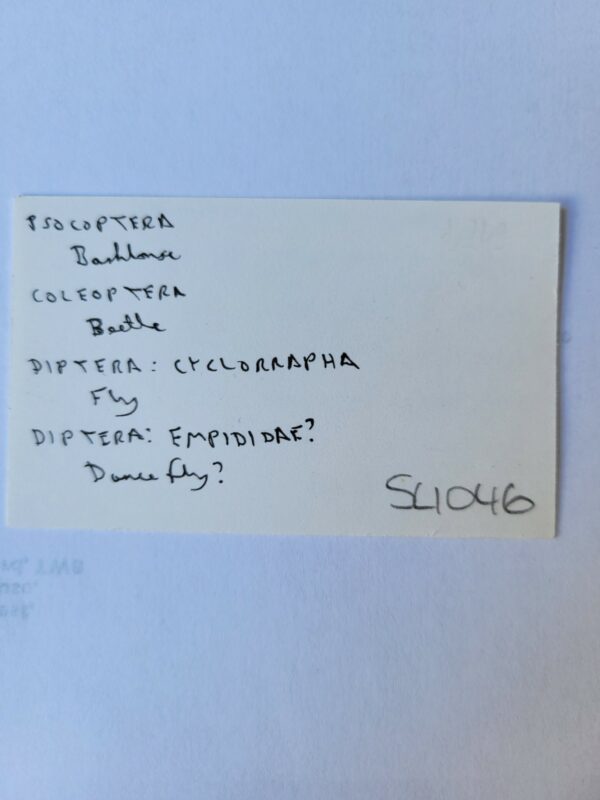 PSOCOPTERA
Barklouse
COLEOPTERA
Beetle
DIPTERA: CYCLORRAPHA
Fly
DIPTERA: EMPIDIDAE?
Dance fly?
SL1046